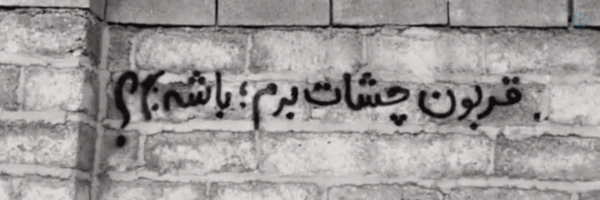 . قربون چشات برم ؛ باشه ؟